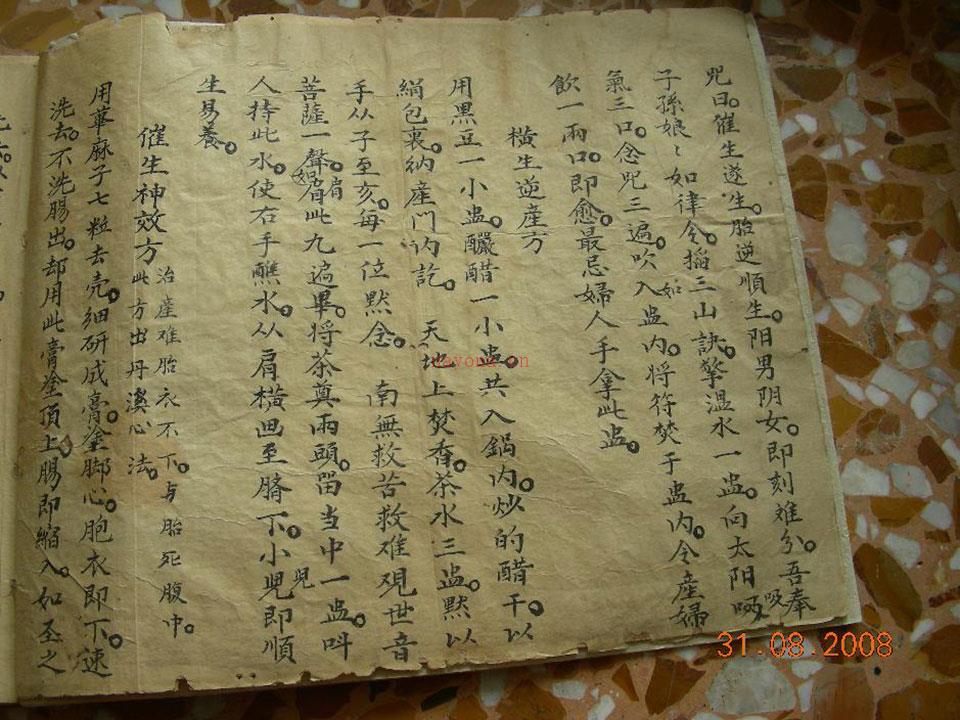 咒曰。催生遂生。胎逆順生。阳男阴女。即刻难分。吾奉
子孫娘〻如律令。搯三山訣。擎溫水一盅。向太阳吸
氣三口。念咒三遍。吹入盅内。将符焚于盅内。令産婦
飲一両口。即愈。最忌婦人手拿此盅。
横生逆産方
用黑豆一小盅。釅醋一小盅。共入鍋内。炒的醋干。以
絹包裹。納産門内訖。天地上焚香。茶水三盅。黙以
手从子至亥。每一位默念。南無救苦救难观世音
菩薩一聲。此九遍畢。将茶奠両頭。留当中一盅。呌
人持此水。使右手蘸水。从肩横画至臍下。小兒即順
生易養。
催生神效方 治産难胎衣不下。与胎死腹中。
此方出丹溪心法。
用萆麻子七粒去壳。细研成膏。塗脚心。胞衣即下。速
洗去。不洗腸出。却用此膏塗頂上。腸即縮入。如至之
31.08.2008